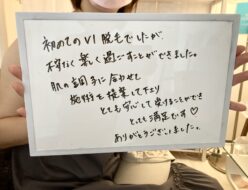 初めてのVI脱毛でしたが
痛なく楽しく過ごすことができました。
肌の調子に合わせて
施術を提案して下さり
とても安心して受けることができ
とっても満足です♡
ありがとうございました。